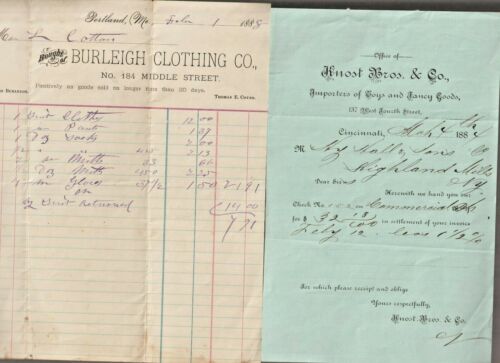 Portland, Me. Feb 1 1888
L Cotton
Bought of
BURLEIGH CLOTHING CO.,
NO. 184 MIDDLE STREET.
Positively no goods sold on longer than 30 days.
BURLEIGH. THOMAS E.
1 Suit Clothes 12.00
1 Pants
Socks 2.00
2 Mitts 33 66
1/2 Dz Mitts 450 2.25
Gloves 37 1/2 1.50 21 91
By Suit Returned 14 00
7 91
Office of
Knost Bros. & Co.,
Importers of Toys and Fancy Goods,
137 West Fourth Street,
Cincinnati, 1884
M Sons Co
Highland Mills
NY
Dear Sirs
Herewith we hand you our
Check No 102 on Commercial Bk
for $ 32 18/100 in settlement of your invoice
Feby 12 less 1 1/2 %
For which please receipt and oblige
Yours respectfully,
Knost Bros. & Co.